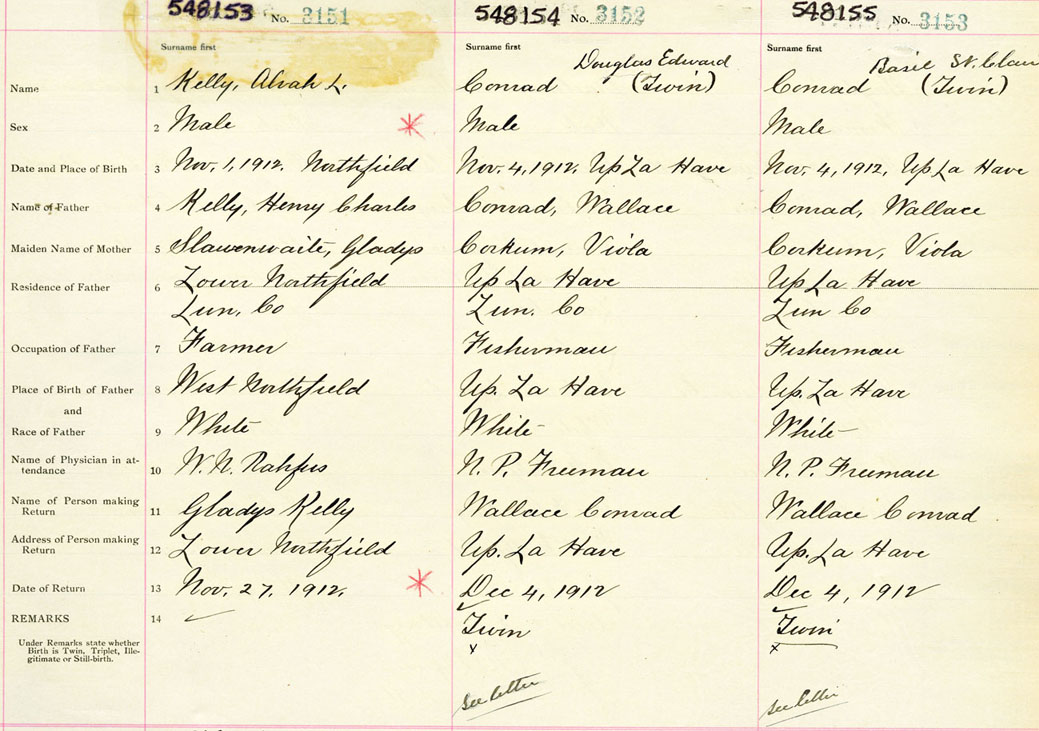 548153 No. 3151 548154 No. 3152 548155 No. 3153
Surname first Surname first Surname first
Douglas Edward Basil St. Clair
Name 1 Kelly, Alvah L. Conrad (Twin) Conrad (Twin)
Sex 2 Male Male Male
Date and Place of Birth 3 Nov. 1, 1912. Northfield Nov. 4, 1912, Up La Have Nov. 4, 1912, Up La Have
Name of Father 4 Kelly, Henry Charles Conrad, Wallace Conrad, Wallace
Maiden Name of Mother 5 Slawenwaite, Gladys Corkum, Viola Corkum, Viola
Residence of Father 6 Lower Northfield Up La Have Up La Have
Lun. Co Lun. Co Lun Co
Occupation of Father 7 Farmer Fisherman Fisherman
Place of Birth of Father 8 West Northfield Up. La Have Up. La Have
and
Race of Father 9 White White White
Name of Physician in at-
tendance 10 W. N. Rahfus N. P. Freeman N. P. Freeman
Name of Person making
Return 11 Gladys Kelly Wallace Conrad Wallace Conrad
Address of Person making
Return 12 Lower Northfield Up. La Have Up. La Have
Date of Return 13 Nov. 27, 1912. Dec 4, 1912 Dec 4, 1912
REMARKS 14 Twin Twin
Under Remarks state whether
Birth is Twin, Triplet, Ille-
gitimate or Still-birth.
x x
See letter See letter